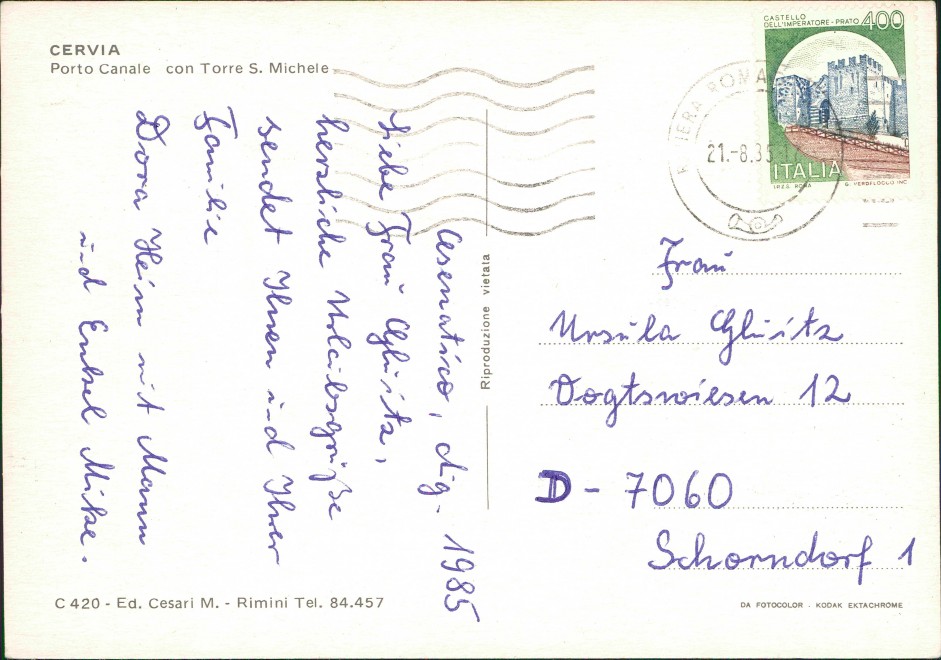 CERVIA
Porto Canale con Torre S. Michele
Cesenatico, Aug. 1985
Liebe Frau Glüitz,
herzliche Urlaubsgrüße
sendet Ihnen und Ihrer
Familie
Dora Heim mit Mann
und Enkel Mike.
C 420 - Ed. Cesari M. - Rimini Tel. 84.457
Riproduzione vietata
CASTELLO
DELL'IMPERATORE - PRATO 400
ITALIA
I.P.Z.S. ROMA
21.-8.85
Frau
Ursula
Vogtswiesen 12
D - 7060
Schorndorf 1
DA FOTOCOLOR - KODAK EKTACHROME